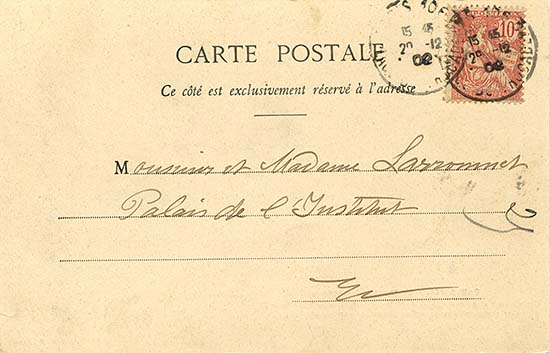 CARTE POSTALE
Ce côté est exclusivement réservé à l'adresse
Monsieur et Madame Larroumet
Palais de l'Institut
15 45
29 -12
02
15 45
29 -12
02
10